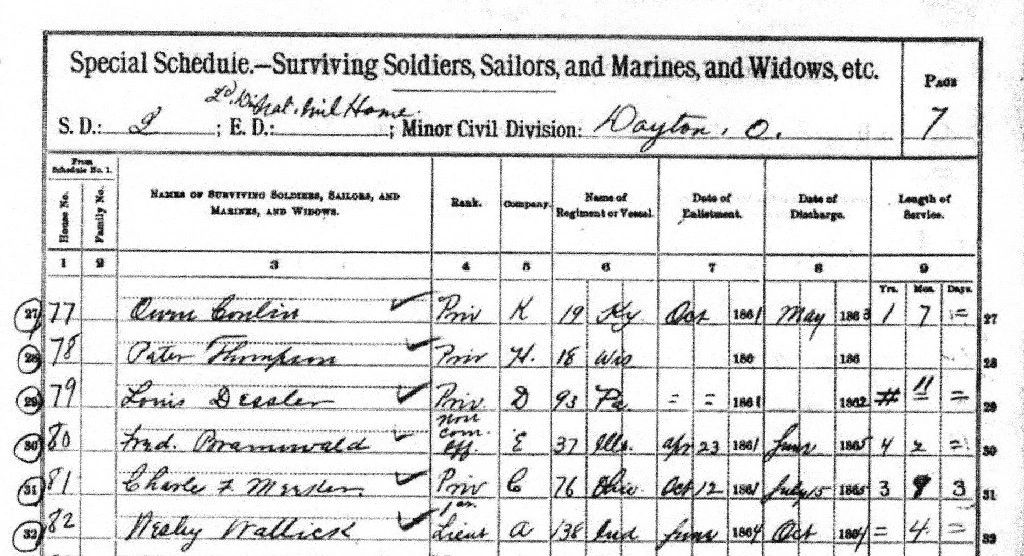 Special Schedule.—Surviving Soldiers, Sailors, and Marines, and Widows, etc.
PAGE
7
S. D.: 2 ; E. D.: Mil Home ; Minor Civil Division: Dayton, O.
From Schedule No. 1.
House No. Family No. NAMES OF SURVIVING SOLDIERS, SAILORS, AND MARINES, AND WIDOWS. Rank. Company. Name of Regiment or Vessel. Date of Enlistment. Date of Discharge. Length of Service.
1 2 3 4 5 6 7 8 9
Yrs. Mos. Days.
27 77 Owen Conlin Priv K 19 Ky Oct 1861 May 1863 1 7 = 27
28 78 Peter Thompson Priv H. 18 Wis 186 186 28
29 79 Louis Dessler Priv. D 93 Pa = = 1861 1862 11 = 29
30 80 Fred. non com. off. E 37 Ills. Apr 23 1861 June 1865 4 2 = 30
31 81 Charles F Priv C 76 Ohio Oct 12 1861 July 15 1865 3 9 3 31
32 82 Wesley Wallick Lieut A 138 Ind June 1864 Oct 1864 = 4 = 32